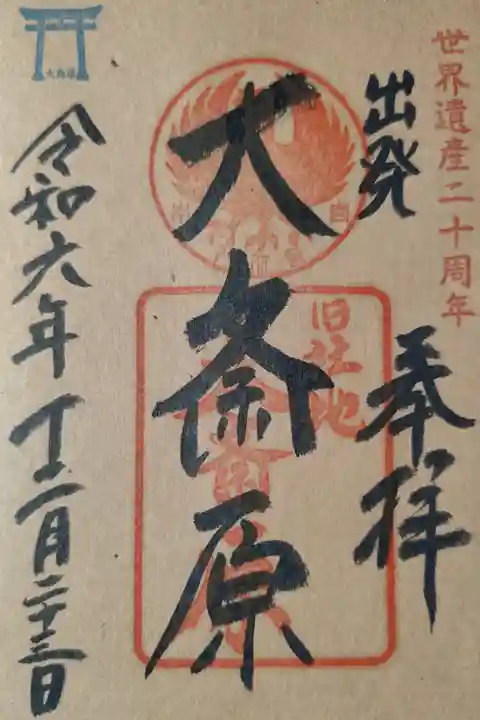 世界遺産二十周年
出発
奉拝
大斎原
旧社地
令和六年十二月二十三日
大鳥居